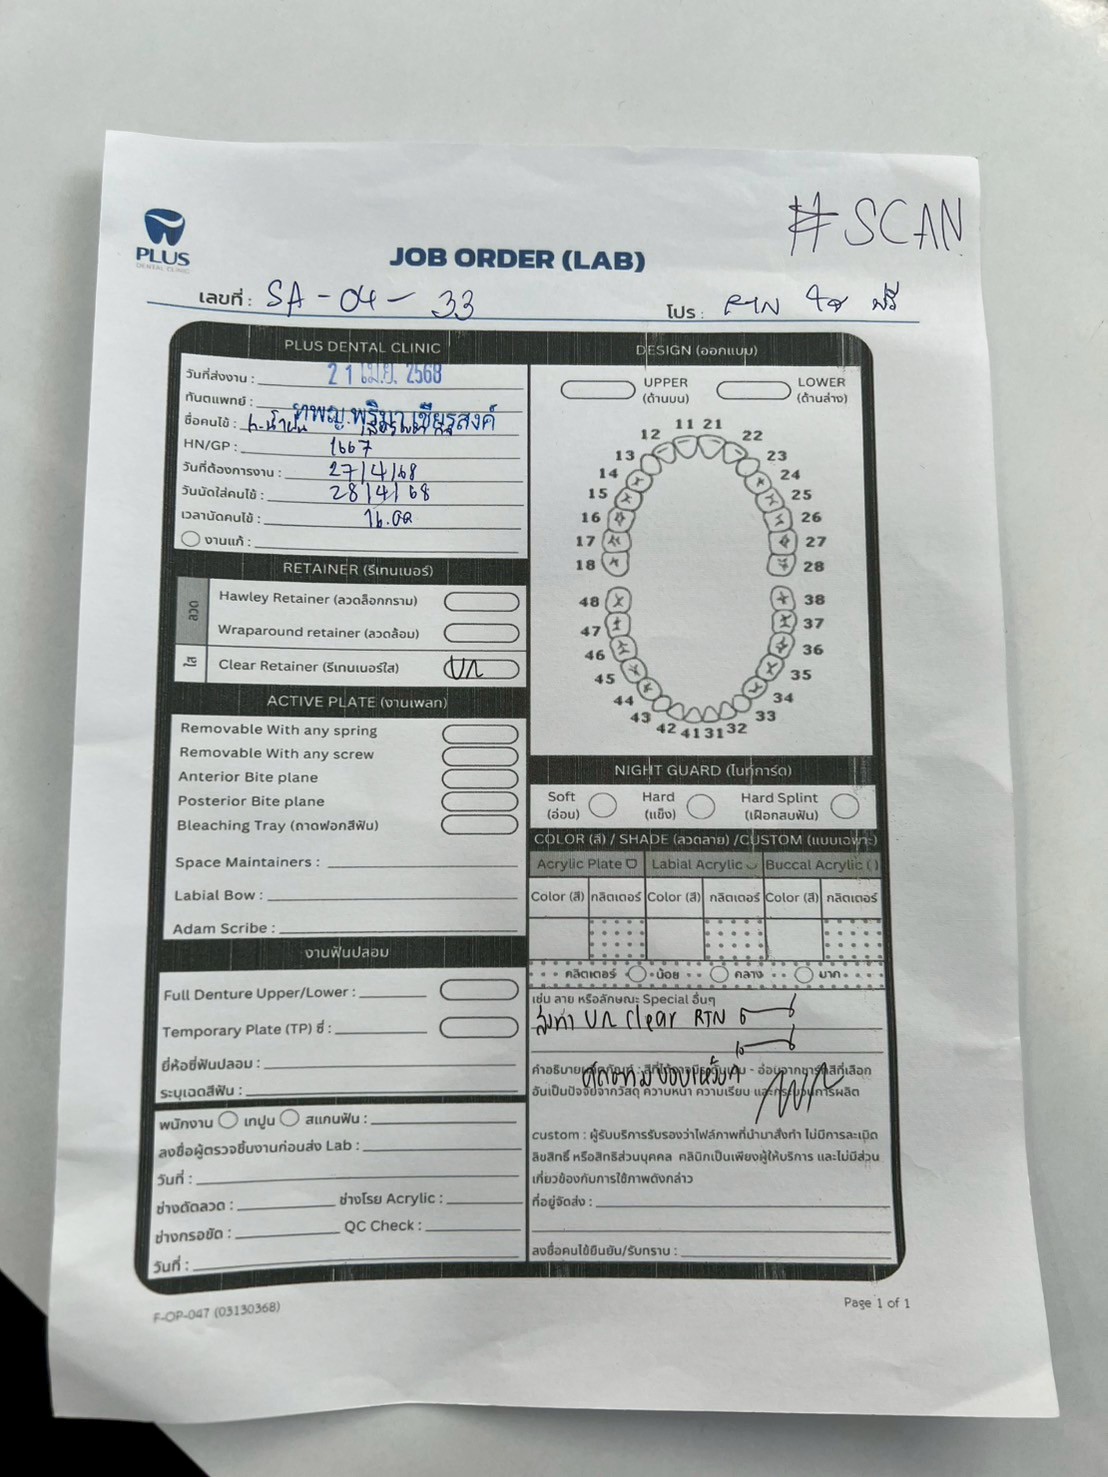 #SCAN
PLUS
DENTAL CLINIC
JOB ORDER (LAB)
เลขที่ : SA - 04 - 33
โปร : RTN ฟรี
PLUS DENTAL CLINIC
วันที่ส่งงาน : 21 เม.ย. 2568
ทันตแพทย์ : ทพญ.พริมา เชียรสงค์
ชื่อคนไข้ :
HN/GP : 1667
วันที่ต้องการงาน : 27/4/68
วันนัดใส่คนไข้ : 28/4/68
เวลานัดคนไข้ : 16.00
งานแก้ :
RETAINER (รีเทนเนอร์)
ลวด
Hawley Retainer (ลวดล็อกกราม)
Wraparound retainer (ลวดล้อม)
ใส
Clear Retainer (รีเทนเนอร์ใส) บล
ACTIVE PLATE (งานเพลท)
Removable With any spring
Removable With any screw
Anterior Bite plane
Posterior Bite plane
Bleaching Tray (ถาดฟอกสีฟัน)
Space Maintainers :
Labial Bow :
Adam Scribe :
งานฟันปลอม
Full Denture Upper/Lower :
Temporary Plate (TP) ซี่ :
ยี่ห้อซี่ฟันปลอม :
ระบุเฉดสีฟัน :
พนักงาน เทปูน สแกนฟัน :
ลงชื่อผู้ตรวจชิ้นงานก่อนส่ง Lab :
วันที่ :
ช่างดัดลวด : ช่างโรย Acrylic :
ช่างกรอขัด : QC Check :
วันที่ :
DESIGN (ออกแบบ)
UPPER
(ด้านบน)
LOWER
(ด้านล่าง)
11 21
12 22
13 23
14 24
15 25
16 26
17 27
18 28
48 38
47 37
46 36
45 35
44 34
43 33
42 41 31 32
NIGHT GUARD (ไนท์การ์ด)
Soft
(อ่อน)
Hard
(แข็ง)
Hard Splint
(เฝือกสบฟัน)
COLOR (สี) / SHADE (ลวดลาย) /CUSTOM (แบบเฉพาะ)
Acrylic Plate Labial Acrylic Buccal Acrylic ( )
Color (สี) กลิตเตอร์ Color (สี) กลิตเตอร์ Color (สี) กลิตเตอร์
กลิตเตอร์ น้อย กลาง มาก
เช่น ลาย หรือลักษณะ Special อื่นๆ
สั่งทำ บล clear RTN 6 6
6 6
คำอธิบายผลิตภัณฑ์ : สีที่ได้อาจมีระดับเข้ม - อ่อนจากชาร์ตสีที่เลือก
อันเป็นปัจจัยจากวัสดุ ความหนา ความเรียบ และกระบวนการผลิต
custom : ผู้รับบริการรับรองว่าไฟล์ภาพที่นำมาสั่งทำ ไม่มีการละเมิด
ลิขสิทธิ์ หรือสิทธิส่วนบุคคล คลินิกเป็นเพียงผู้ให้บริการ และไม่มีส่วน
เกี่ยวข้องกับการใช้ภาพดังกล่าว
ที่อยู่จัดส่ง :
ลงชื่อคนไข้ยืนยัน/รับทราบ :
F-OP-047 (03130368)
Page 1 of 1